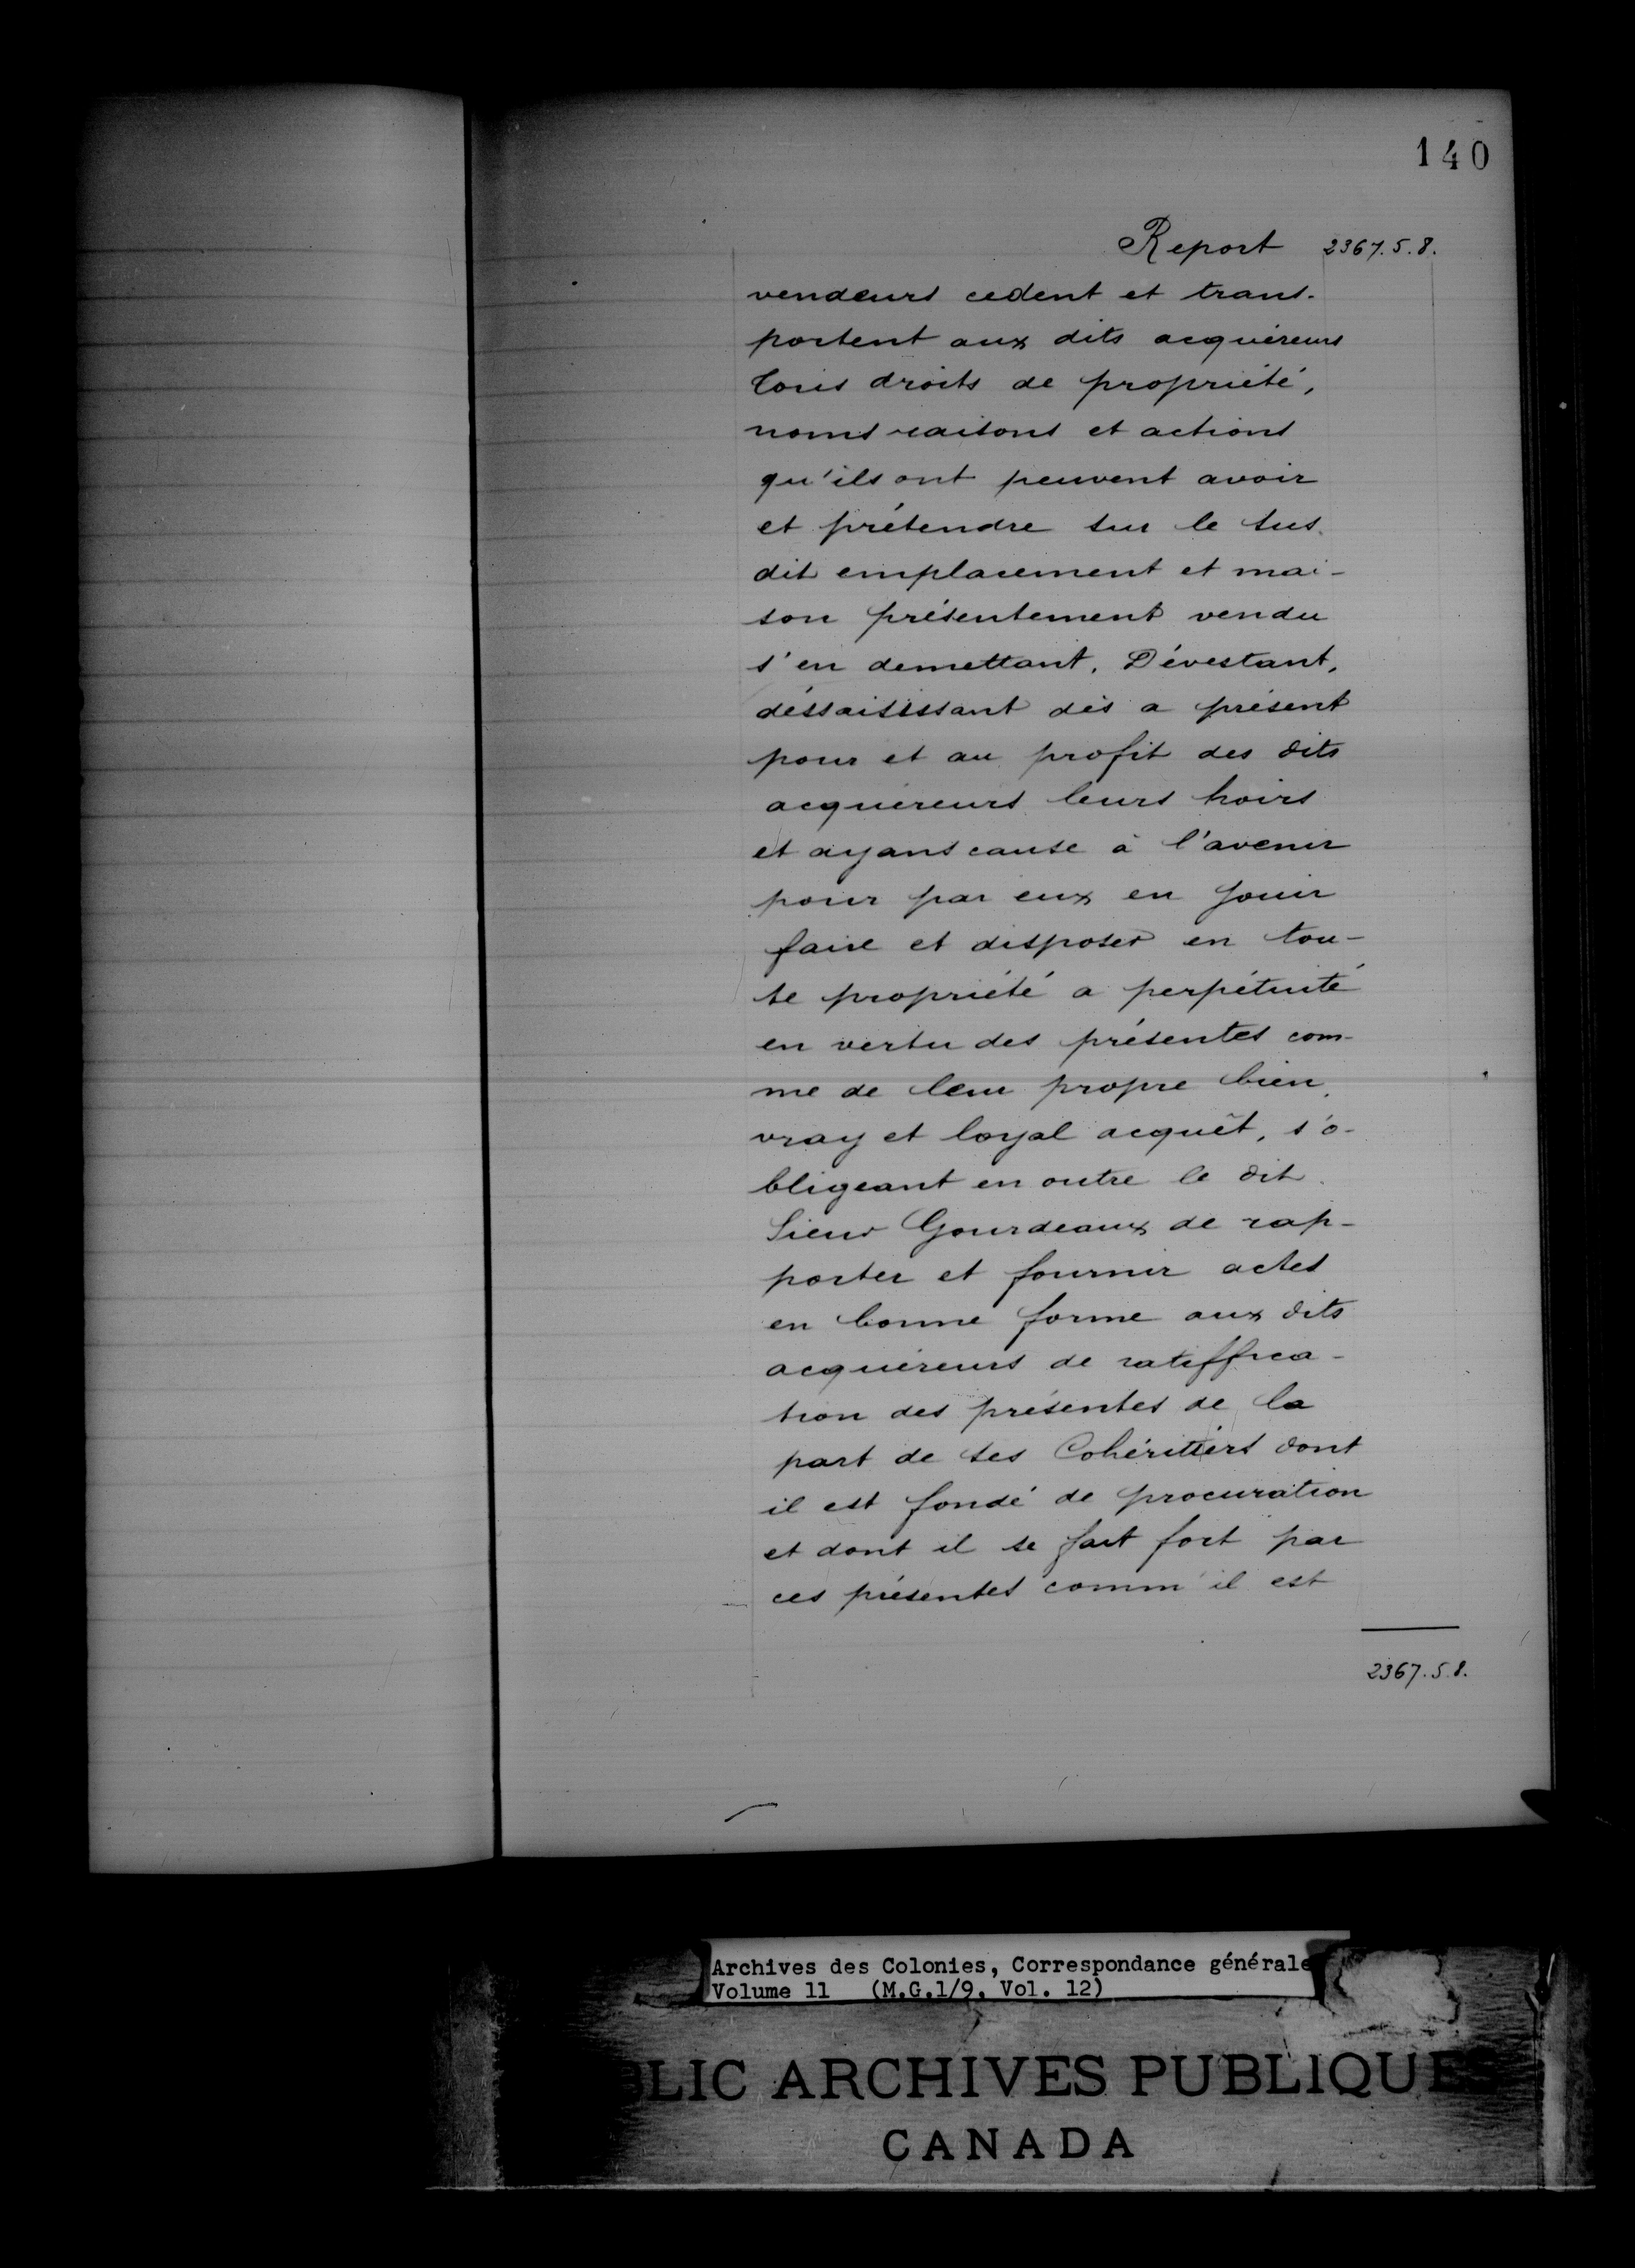 140
Report 2367.5.8.
vendeurs cedent et trans-
portent aux dits acquéreurs
tous droits de propriété,
noms raisons et actions
qu'ils ont peuvent avoir
et prétendre sur le sus.
dit emplacement et mai-
son présentement vendu
s'en demettant, Dévestant,
déssaisissant dès a présent
pour et au profit des dits
acquereurs leurs hoirs
et ayans cause à l'avenir
pour par eux en jouir
faire et disposer en tou-
te propriété a perpétuité
en vertu des présentes com-
me de leur propre bien,
vray et loyal acquêt, s'o-
bligeant en outre le dit
Sieur Gourdeaux de rap-
porter et fournir actes
en bonne forme aux dits
acquéreurs de ratiffica-
tion des présentes de la
part de ses Cohéritiers dont
il est fondé de procuration
et dont il se fait fort par
ces présentes comm'il est
2367.5.8.
Archives des Colonies, Correspondance générale
Volume 11 (M.G.1/9, Vol. 12)
BLIC ARCHIVES PUBLIQUES
CANADA